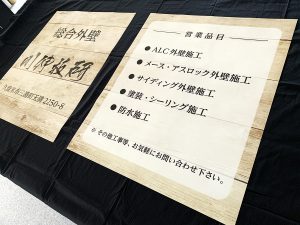 総合外壁
久留米市三潴町玉満2250-8
営業品目
●ALC外壁施工
●メース・アスロック外壁施工
●サイディング外壁施工
●塗装・シーリング施工
●防水施工
※その他工事等、お気軽にお問い合わせ下さい。